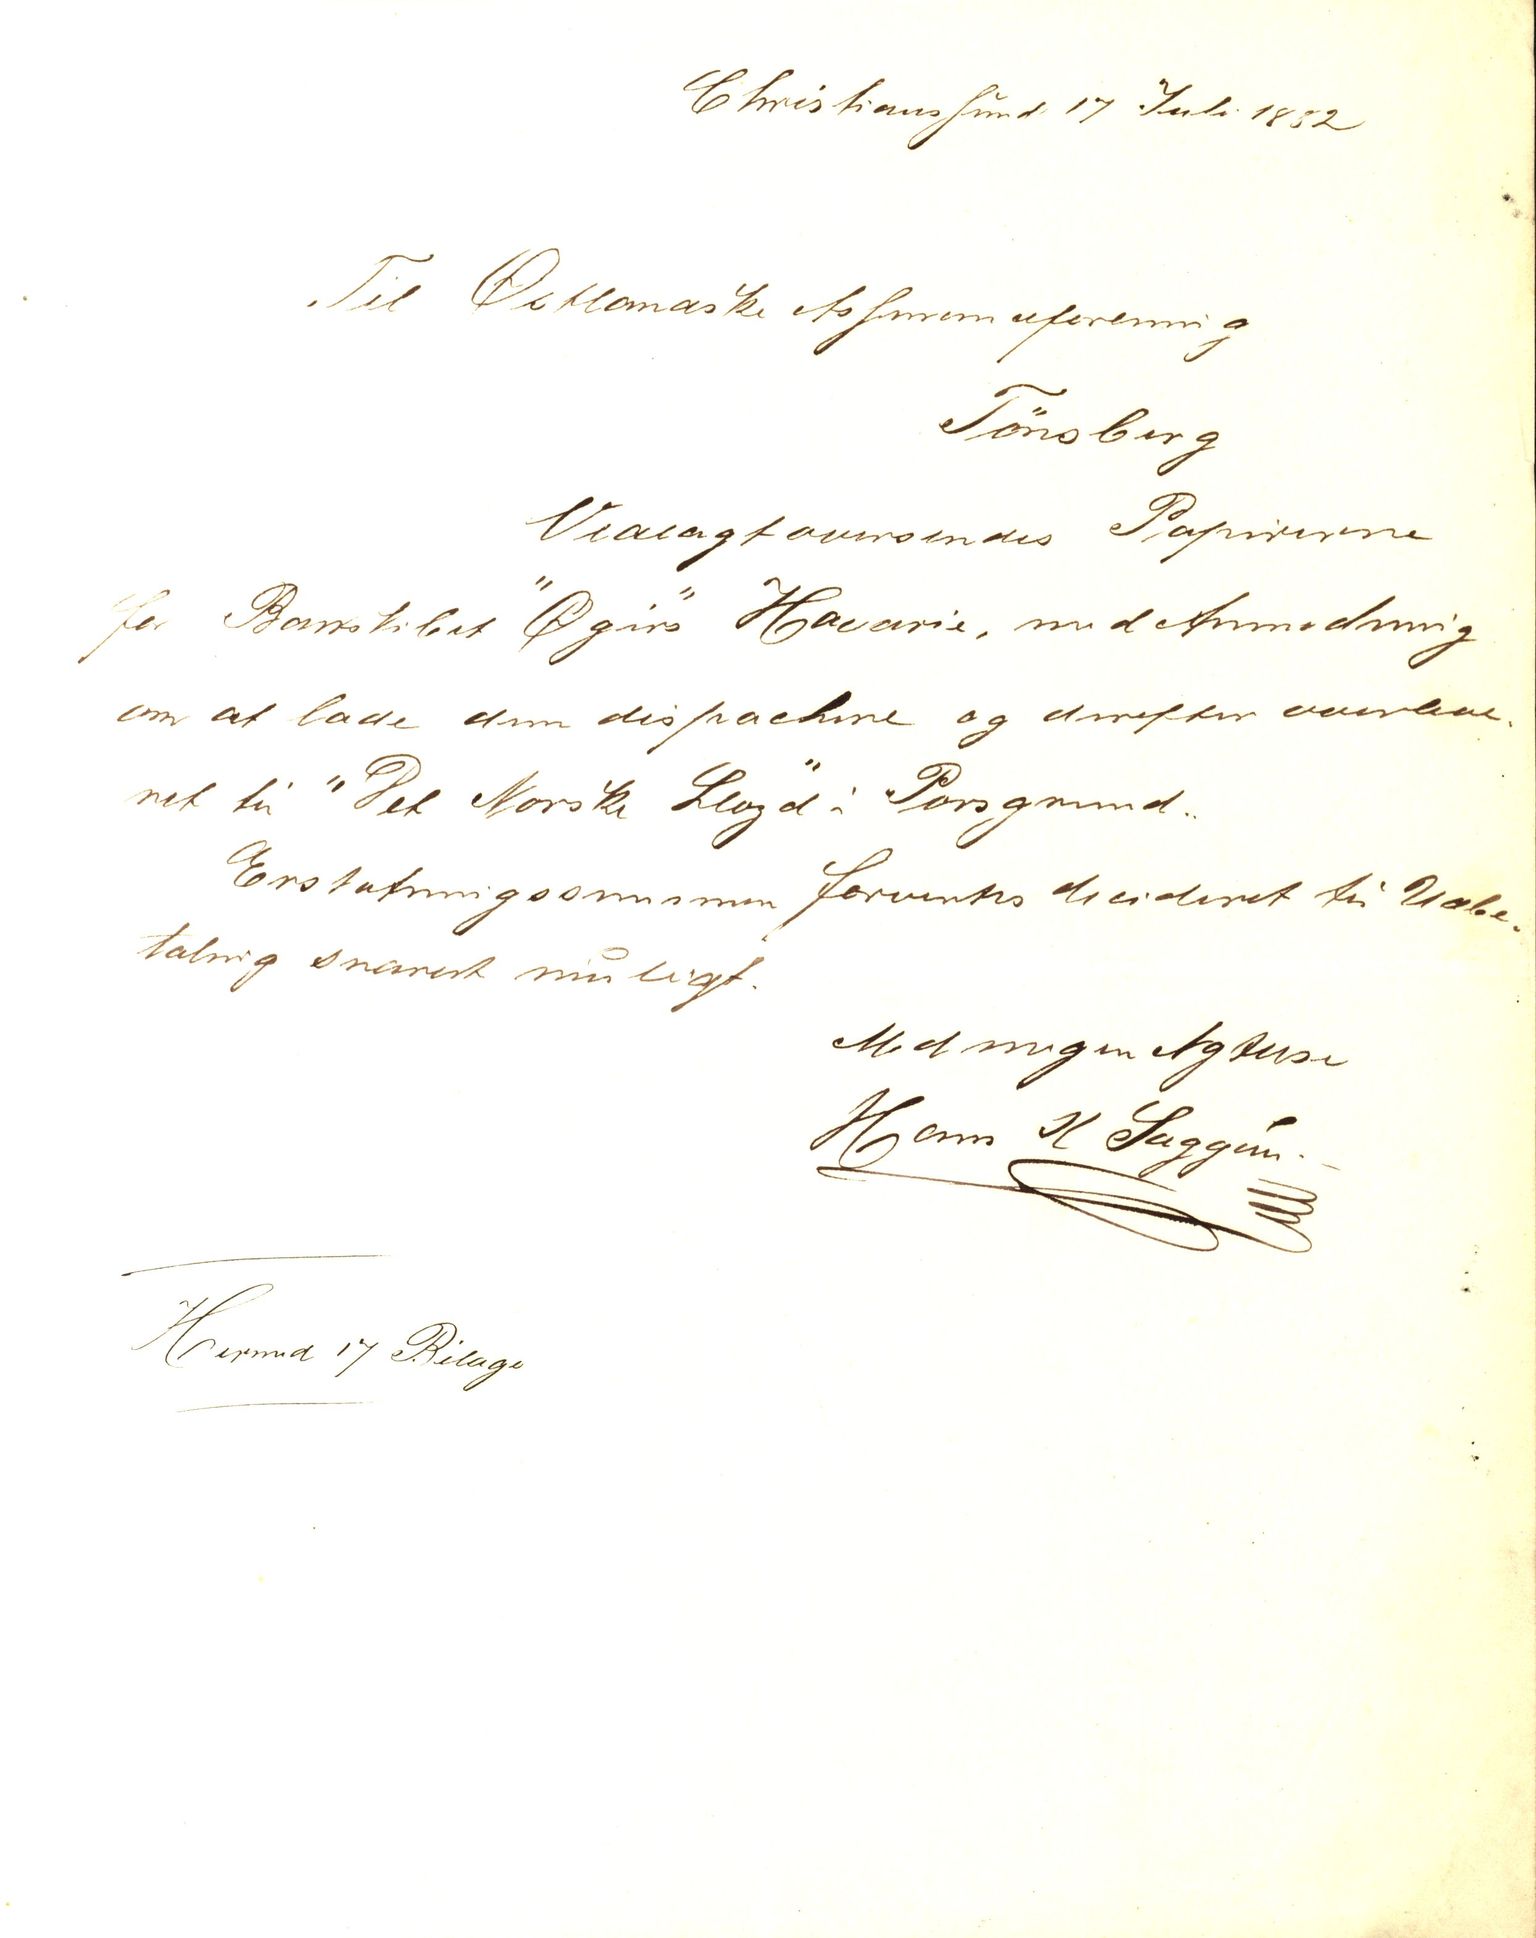 Christiansund 17 Juli 1882
Til Østlandske Assuranceforening
Tönsberg
Vedlagt oversendes Papirerne
for Barkskibet "Øgirs" Havarie, med Anmodning
om at lade dem dispachere og derefter overleve-
ret til "Det Norske Lloyd" i Porsgrund.
Erstatningssummen forventes decideret til Udbe-
taling snarest muligt.
Med megen Agtelse
Hans K
Hermed 17 Bilage